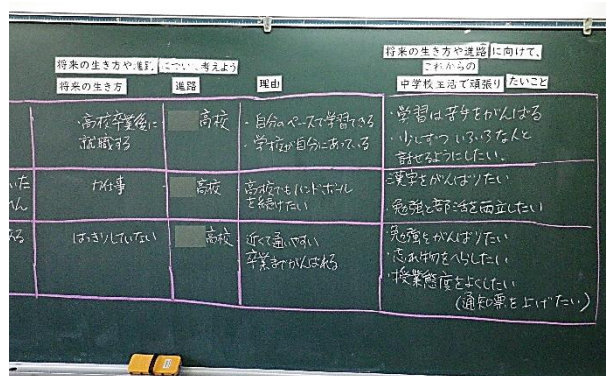 将来の生き方や進路について、考えよう
将来の生き方
進路
理由
将来の生き方や進路に向けて、
これからの
中学校生活で頑張りたいこと
・高校卒業後に
就職する
高校
・自分のペースで学習できる
・学校が自分にあっている
・学習は苦手をがんばる
・少しずついろいろな人と
話せるようにしたい。
いた
高校
高校でもハンドボール
を続けたい
漢字をがんばりたい
勉強と部活を両立したい
はっきりしていない
高校
近くて通いやすい
卒業までがんばれる
勉強をがんばりたい
・忘れ物をへらしたい
・授業態度をよくしたい
(通知票を上げたい)